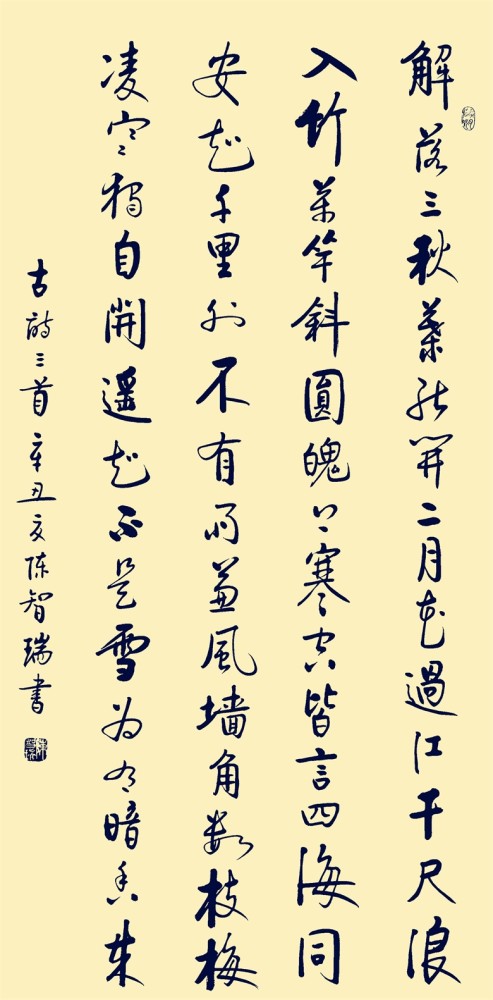 解落三秋葉能開二月花過江千尺浪
入竹萬竿斜圓魄上寒空皆言四海同
安知千里外不有雨兼風墙角数枝梅
凌寒獨自開遥知不是雪为有暗香来
古詩三首辛丑夏陈智瑞書